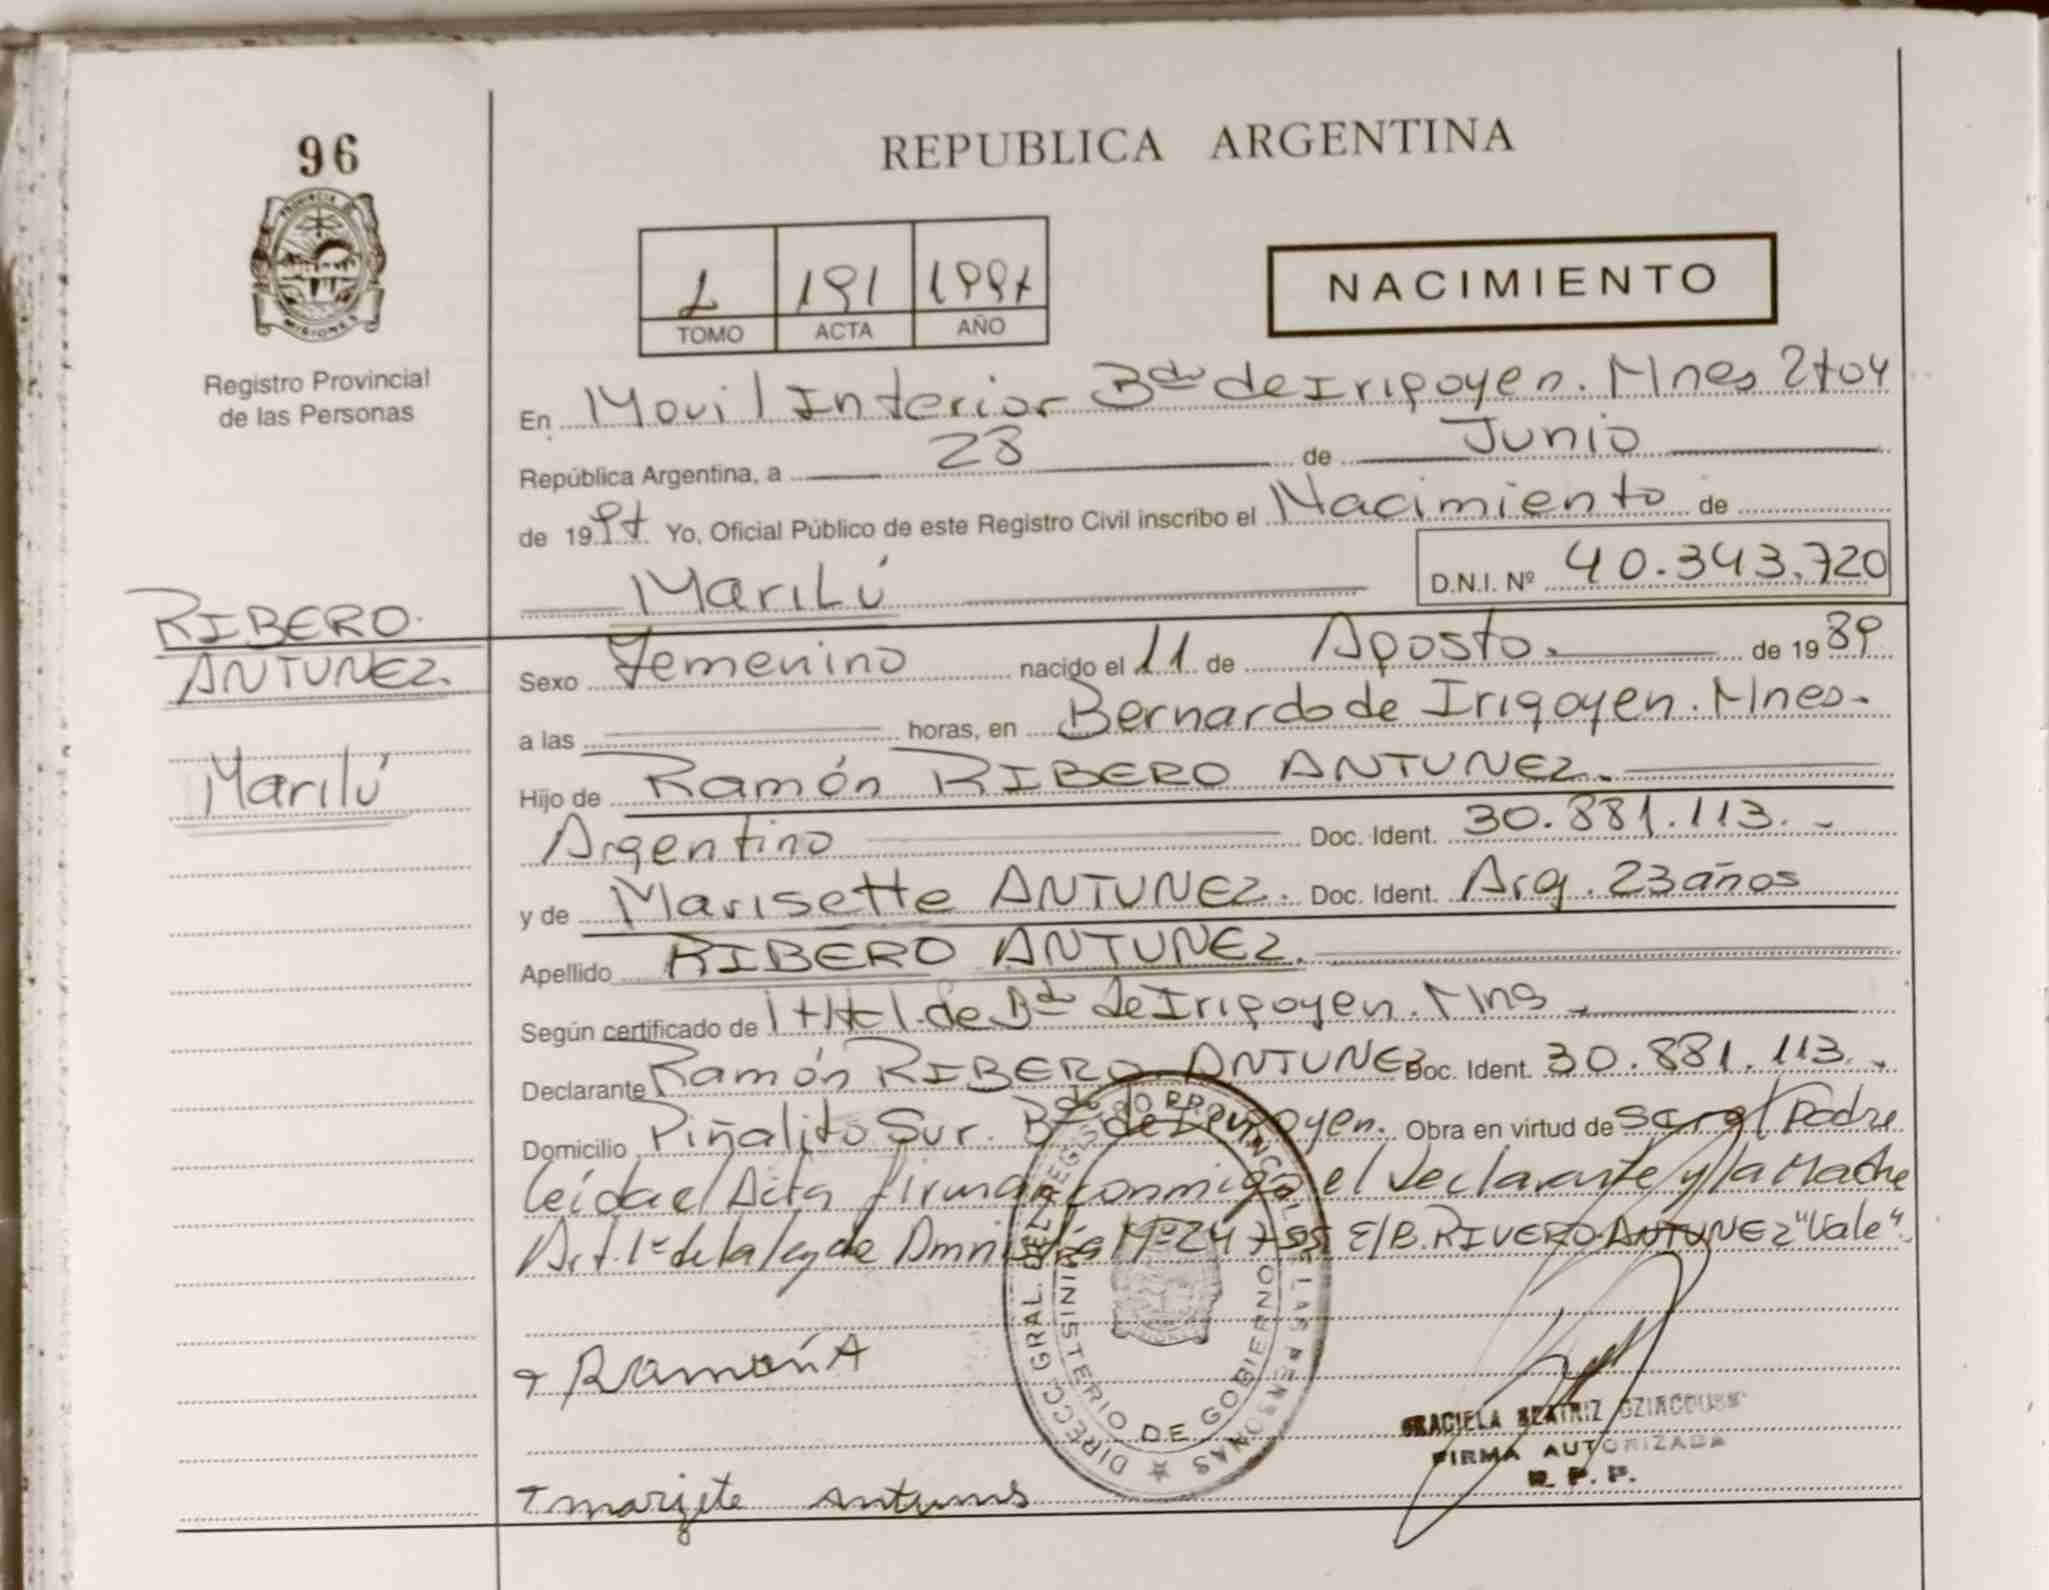 96
PROVINCIA DE
MISIONES
Registro Provincial
de las Personas
RIBERO
ANTUNEZ.
Marilú
REPUBLICA ARGENTINA
1 191 1997
TOMO ACTA AÑO
NACIMIENTO
En Movil Interior Bdo de Irigoyen. Mnes 2704
República Argentina, a 28 de Junio
de 1997 Yo, Oficial Público de este Registro Civil inscribo el Nacimiento de
Marilú D.N.I. Nº 40.343.720
Sexo Femenino nacido el 11 de Agosto. de 1989
a las horas, en Bernardo de Irigoyen. Mnes.
Hijo de Ramón RIBERO ANTUNEZ.
Argentino Doc. Ident. 30.881.113.
y de Marisette ANTUNEZ. Doc. Ident. Arg. 23 años
Apellido RIBERO ANTUNEZ.
Según certificado de de Bdo de Irigoyen. Mns
Declarante Ramón RIBERO ANTUNEZ Doc. Ident. 30.881.113.
Domicilio Piñalito Sur. Bdo de Irigoyen. Obra en virtud de ser el Padre
leída el Acta firman conmigo el declarante y la Madre
Art. 1º de la ley de Amnistía Nº 24755 E/B. RIVERO ANTUNEZ "Vale".
Ramón A
marizete antunes
DIRECC. GRAL. DEL REGISTRO PROVINCIAL DE LAS PERSONAS
MINISTERIO DE GOBIERNO
GRACIELA BEATRIZ
FIRMA AUTORIZADA
R. P. P.